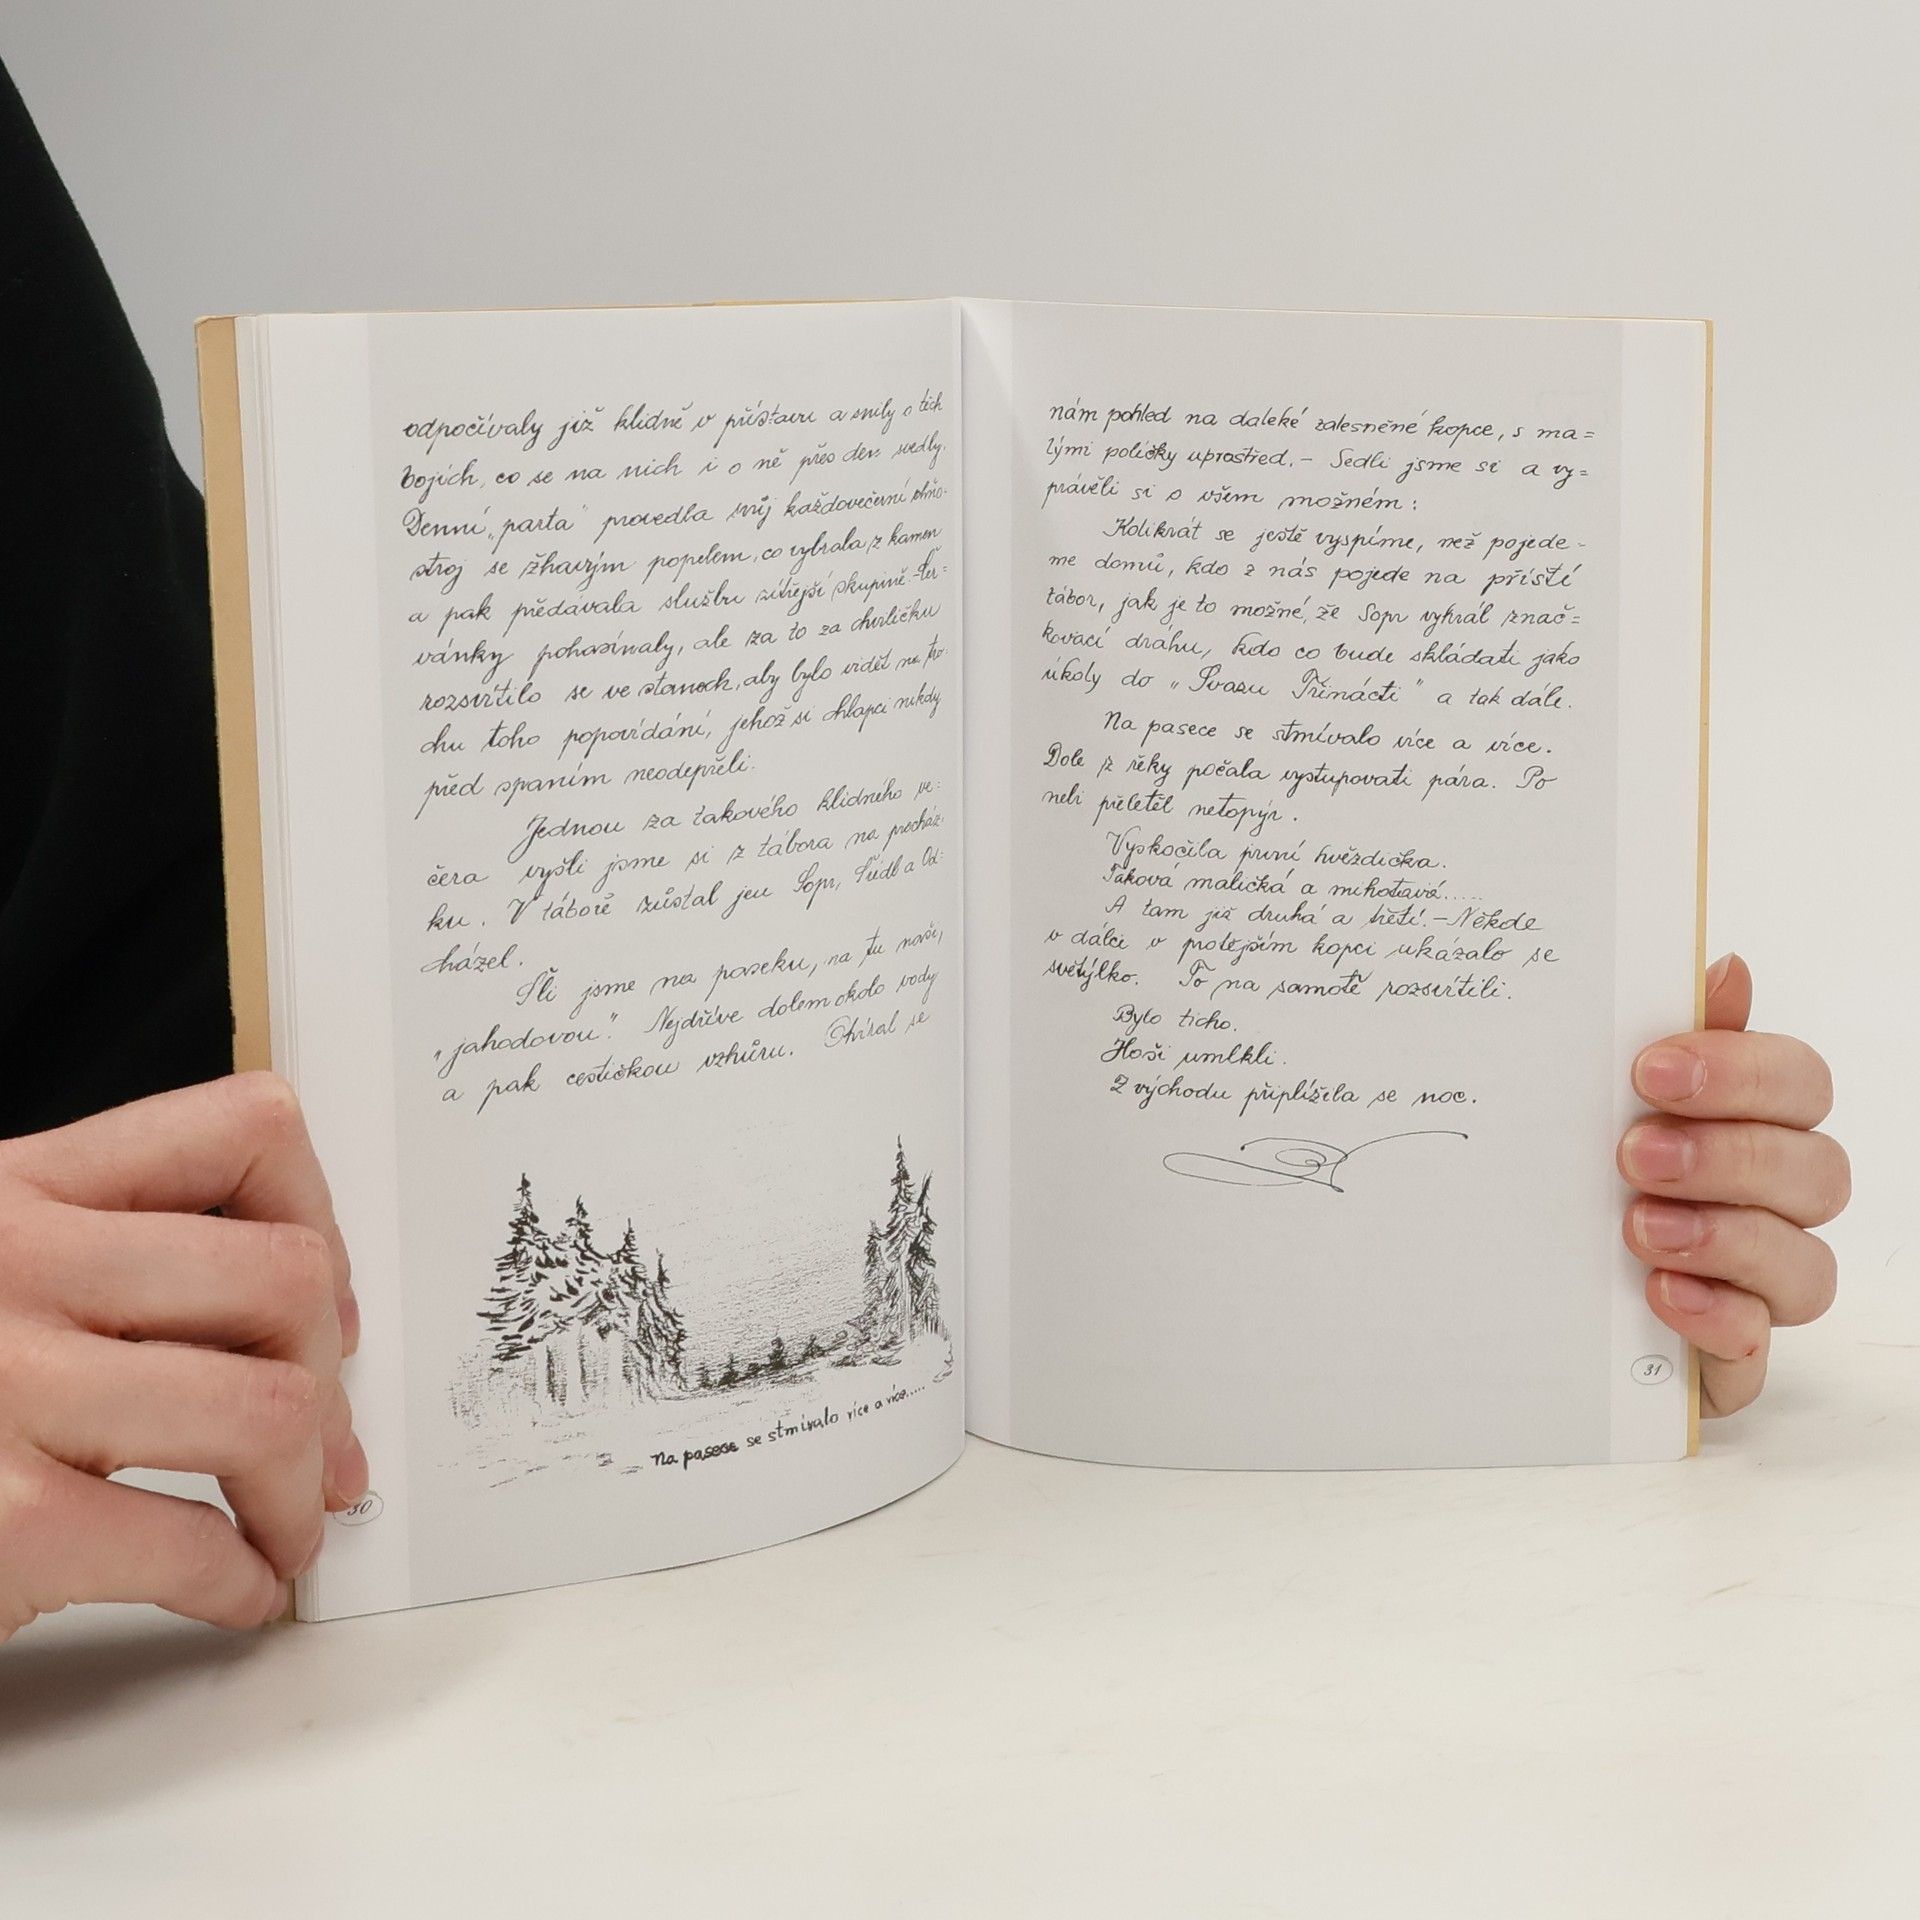 odpočívaly již klidně v přístavu a snily o těch
bojích, co se na nich i o ně přes den svedly.
Denní „parta" provedla svůj každovečerní ohňo-
stroj se žhavým popelem, co vybrala z kamen
a pak předávala službu zítřejší skupině. - Čer=
vánky pohasínaly, ale za to za chviličku
rozsvítilo se ve stanech, aby bylo vidět na tro-
chu toho popovídání, jehož si chlapci nikdy
před spaním neodepřeli.
Jednou za takového klidného ve=
čera vyšli jsme si z tábora na procház-
ku. V táboře zůstal jen Sopr, Šídlo a Od=
cházel.
Šli jsme na paseku, na tu naši,
„jahodovou". Nejdříve dolem okolo vody
a pak cestičkou vzhůru. Otvíral se
Na pasece se stmívalo více a více.....
30
nám pohled na daleké zalesněné kopce, s ma=
lými políčky uprostřed. - Sedli jsme si a vy=
právěli si o všem možném:
Kolikrát se ještě vyspíme, než pojede-
me domů, kdo z nás pojede na příští
tábor, jak je to možné, že Sopr vyhrál znač=
kovací dráhu, kdo co bude skládati jako
úkoly do „Svazu Třinácti" a tak dále.
Na pasece se stmívalo více a více.
Dole z řeky počala vystupovati pára. Po
nebi přeletěl netopýr.
Vyskočila první hvězdička.
Taková maličká a mihotavá.....
A tam již druhá a třetí. - Někde
v dálce v protějším kopci ukázalo se
světýlko. To na samotě rozsvítili.
Bylo ticho.
Hoši umlkli.
Z východu připlížila se noc.
31